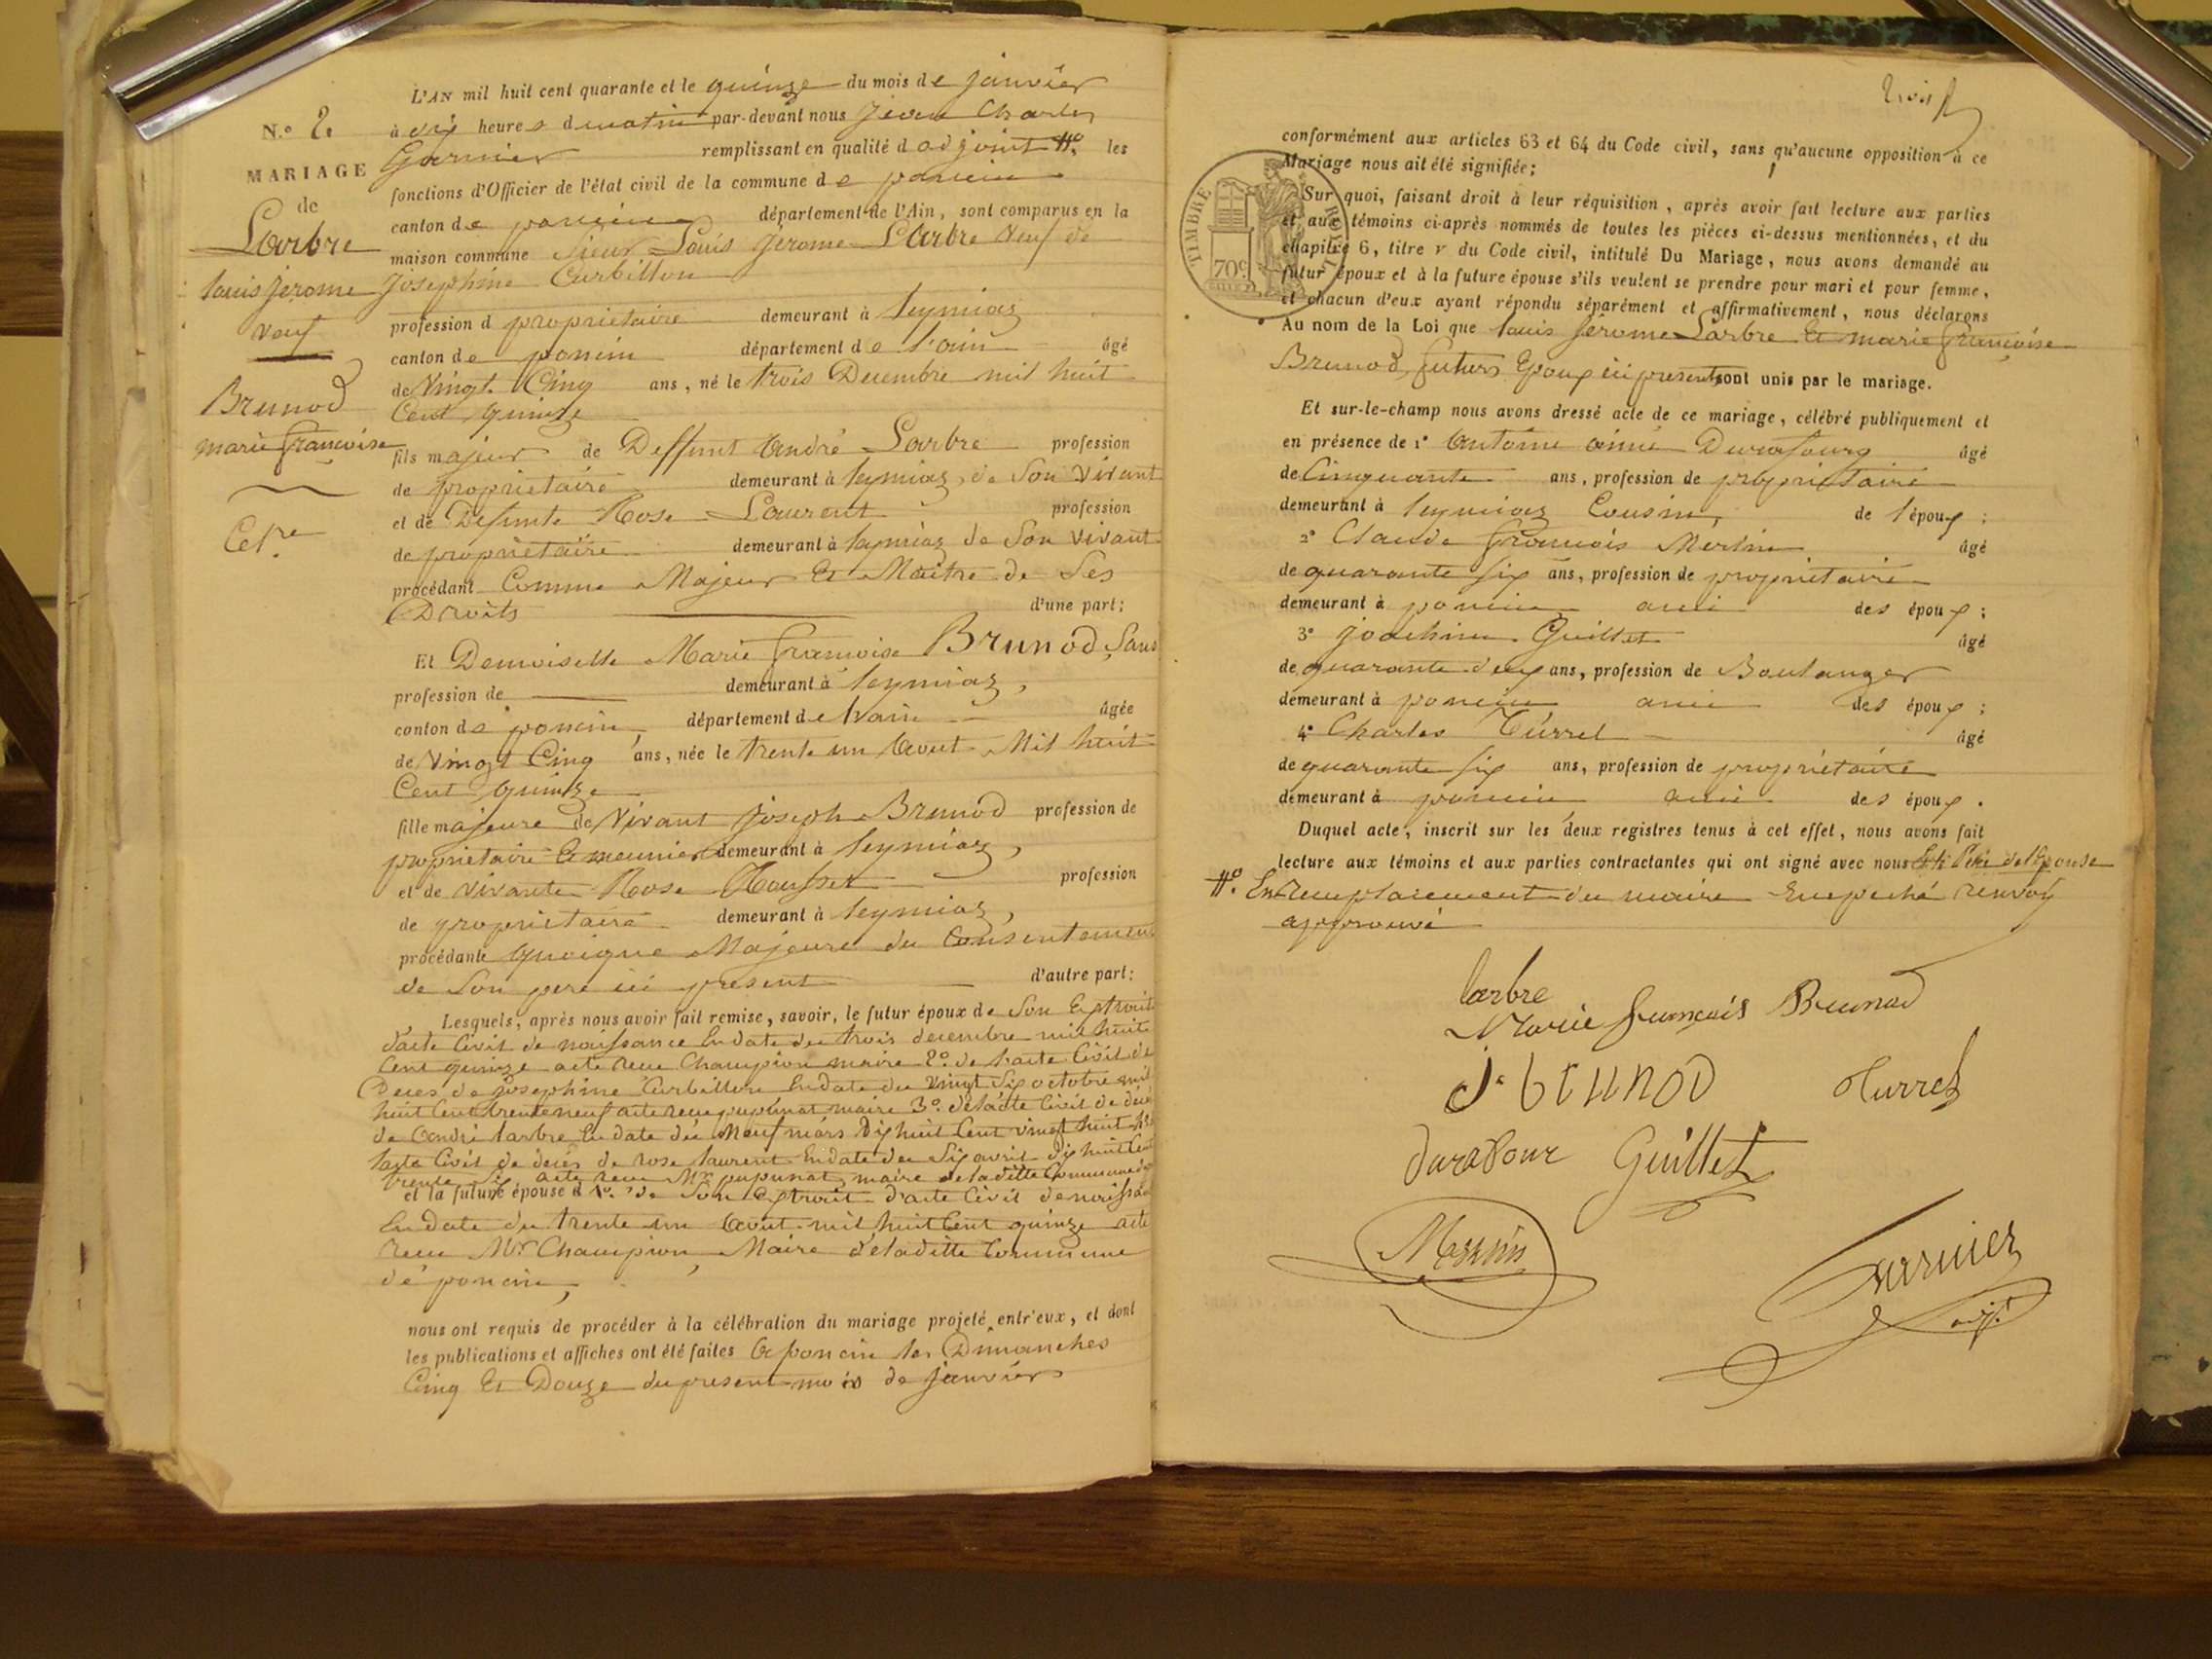 N.° 2.
MARIAGE
de
Larbre
louis jerome
veuf
Brunod
marie françoise
L'AN mil huit cent quarante et le quinze du mois de janvier
à dix heures du matin par-devant nous Jean Charles
Garnier remplissant en qualité d adjoint #° les
fonctions d'Officier de l'état civil de la commune de poncin
canton de poncin département de l'Ain, sont comparus en la
maison commune sieur Louis Jerome Larbre veuf de
Josephine Curbillon
profession d propriétaire demeurant à leymiaz
canton de poncin département de l'ain âgé
de Vingt Cinq ans, né le trois Decembre mil huit
Cent quinze
fils majeur de Deffunt André Larbre profession
de propriétaire demeurant à leymiaz, de Son Vivant
et de Defunte Rose Laurent profession
de propriétaire demeurant à leymiaz de Son vivant
procédant Comme Majeur Et Maitre de Ses
Droits d'une part;
Et Demoiselle Marie françoise Brunod, Sans
profession de demeurant à leymiaz,
canton de poncin, département de l'ain âgée
de Vingt Cinq ans, née le trente un Aout Mil huit
Cent quinze
fille majeure de Vivant Joseph Brunod profession de
propriétaire Et meunier demeurant à leymiaz,
et de vivante Rose profession
de propriétaire demeurant à leymiaz,
procédante quoique Majeure du Consentement
de Son pere ici present d'autre part:
Lesquels, après nous avoir fait remise, savoir, le futur époux de Son Extrait
d'acte Civil de naissance En date du trois decembre mil huit
Cent quinze acte reçu Champion maire 2° de l'acte Civil de
Deces de Josephine Curbillon En date du vingt Six octobre mil
huit Cent trente neuf acte reçu pupunat maire 3° de l'acte Civil de deces
de André larbre En date du Neuf mars Dix huit Cent vingt huit 4°
l'acte Civil de decès de rose laurent En date du Six avril dix huit Cent
trente Six acte reçu Mr pupunat, maire de laditte Commune
et la future épouse d 1° de Son Extrait d'acte Civil de naissance
En date du trente un Aout mil huit Cent quinze acte
reçu Mr Champion, Maire de laditte Commune
de poncin,
nous ont requis de procéder à la célébration du mariage projeté entr'eux, et dont
les publications et affiches ont été faites A poncin les Dimanches
Cinq Et Douze du present mois de janvier
conformément aux articles 63 et 64 du Code civil, sans qu'aucune opposition à ce
Mariage nous ait été signifiée;
TIMBRE ROYAL
70c
Sur quoi, faisant droit à leur réquisition, après avoir fait lecture aux parties
et aux témoins ci-après nommés de toutes les pièces ci-dessus mentionnées, et du
chapitre 6, titre V du Code civil, intitulé Du Mariage, nous avons demandé au
futur époux et à la future épouse s'ils veulent se prendre pour mari et pour femme,
et chacun d'eux ayant répondu séparément et affirmativement, nous déclarons
Au nom de la Loi que louis Jérome Larbre Et marie françoise
Brunod, futurs Epoux ici presents sont unis par le mariage.
Et sur-le-champ nous avons dressé acte de ce mariage, célébré publiquement et
en présence de 1° Antoine aimé Durafourg âgé
de Cinquante ans, profession de propriétaire
demeurant à leymiaz Cousin, de l'époux;
2° Claude françois Merlin âgé
de quarante Six ans, profession de propriétaire
demeurant à poncin ami des époux;
3° joachim Guillet âgé
de quarante deux ans, profession de Boulanger
demeurant à poncin ami des époux;
4° Charles Turrel âgé
de quarante Six ans, profession de propriétaire
demeurant à poncin ami des époux.
Duquel acte, inscrit sur les deux registres tenus à cet effet, nous avons fait
lecture aux témoins et aux parties contractantes qui ont signé avec nous Et le Père de l'épouse
#° En remplacement du maire Empeché renvoy
approuvé
larbre
Marie françois Brunod
J. brunod
Turrel
durafour
Guillet
Garnier
adj.